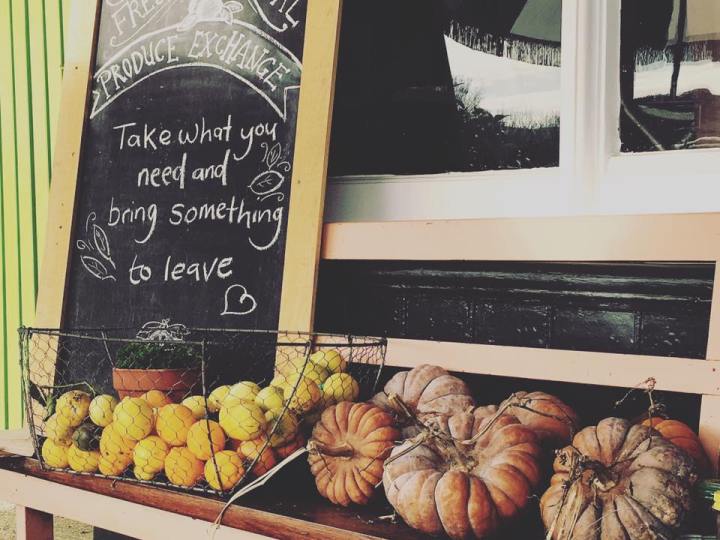 PRODUCE EXCHANGE
Take what you
need and
bring something
to leave